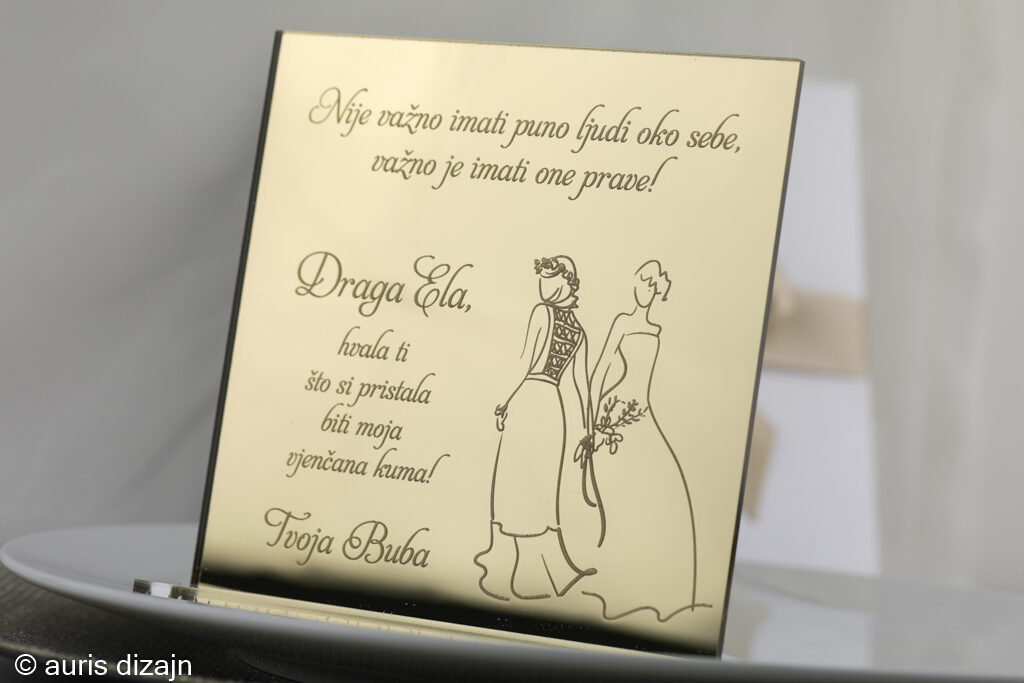 Nije važno imati puno ljudi oko sebe,
važno je imati one prave!
Draga Ela,
hvala ti
što si pristala
biti moja
vjenčana kuma!
Tvoja Buba
© auris dizajn